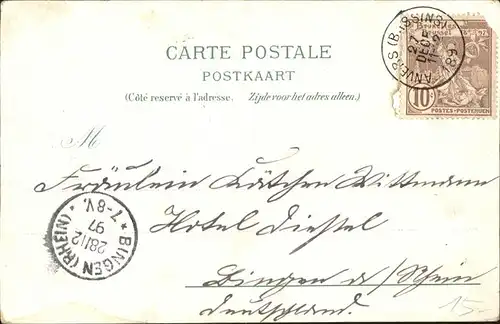 CARTE POSTALE
POSTKAART
(Côté reservé à l'adresse. Zijde voor het adres alleen.)
ANVERS (BASSINS)
27
DEC
10
POSTES-POSTERIJEN
M
Fräulein Kätchen Wittmann
Hotel Distel
Bingen a/Rhein
Deutschland.
BINGEN (RHEIN)
28/12
97
7-8V.
15.-